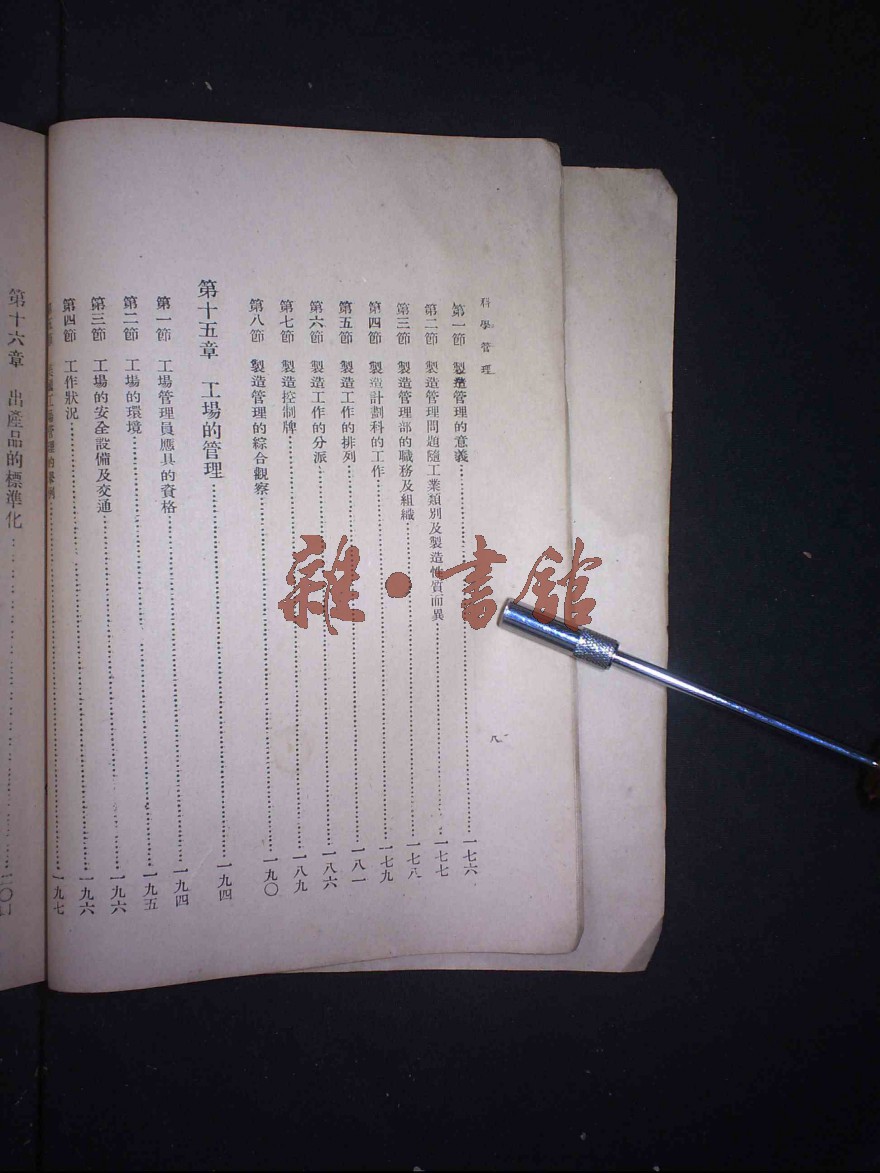 科學管理
八
第一節 製造管理的意義……一七六
第二節 製造管理問題隨工業類別及製造性質而異……一七七
第三節 製造管理部的職務及組織……一七八
第四節 製造計劃科的工作……一七九
第五節 製造工作的排列……一八一
第六節 製造工作的分派……一八六
第七節 製造控制牌……一八九
第八節 製造管理的綜合觀察……一九〇
第十五章 工場的管理……一九四
第一節 工場管理員應具的資格……一九四
第二節 工場的環境……一九五
第三節 工場的安全設備及交通……一九六
第四節 工作狀況……一九六
工場管理的舉例……一九七
第十六章 出產品的標準化……
雜·書館